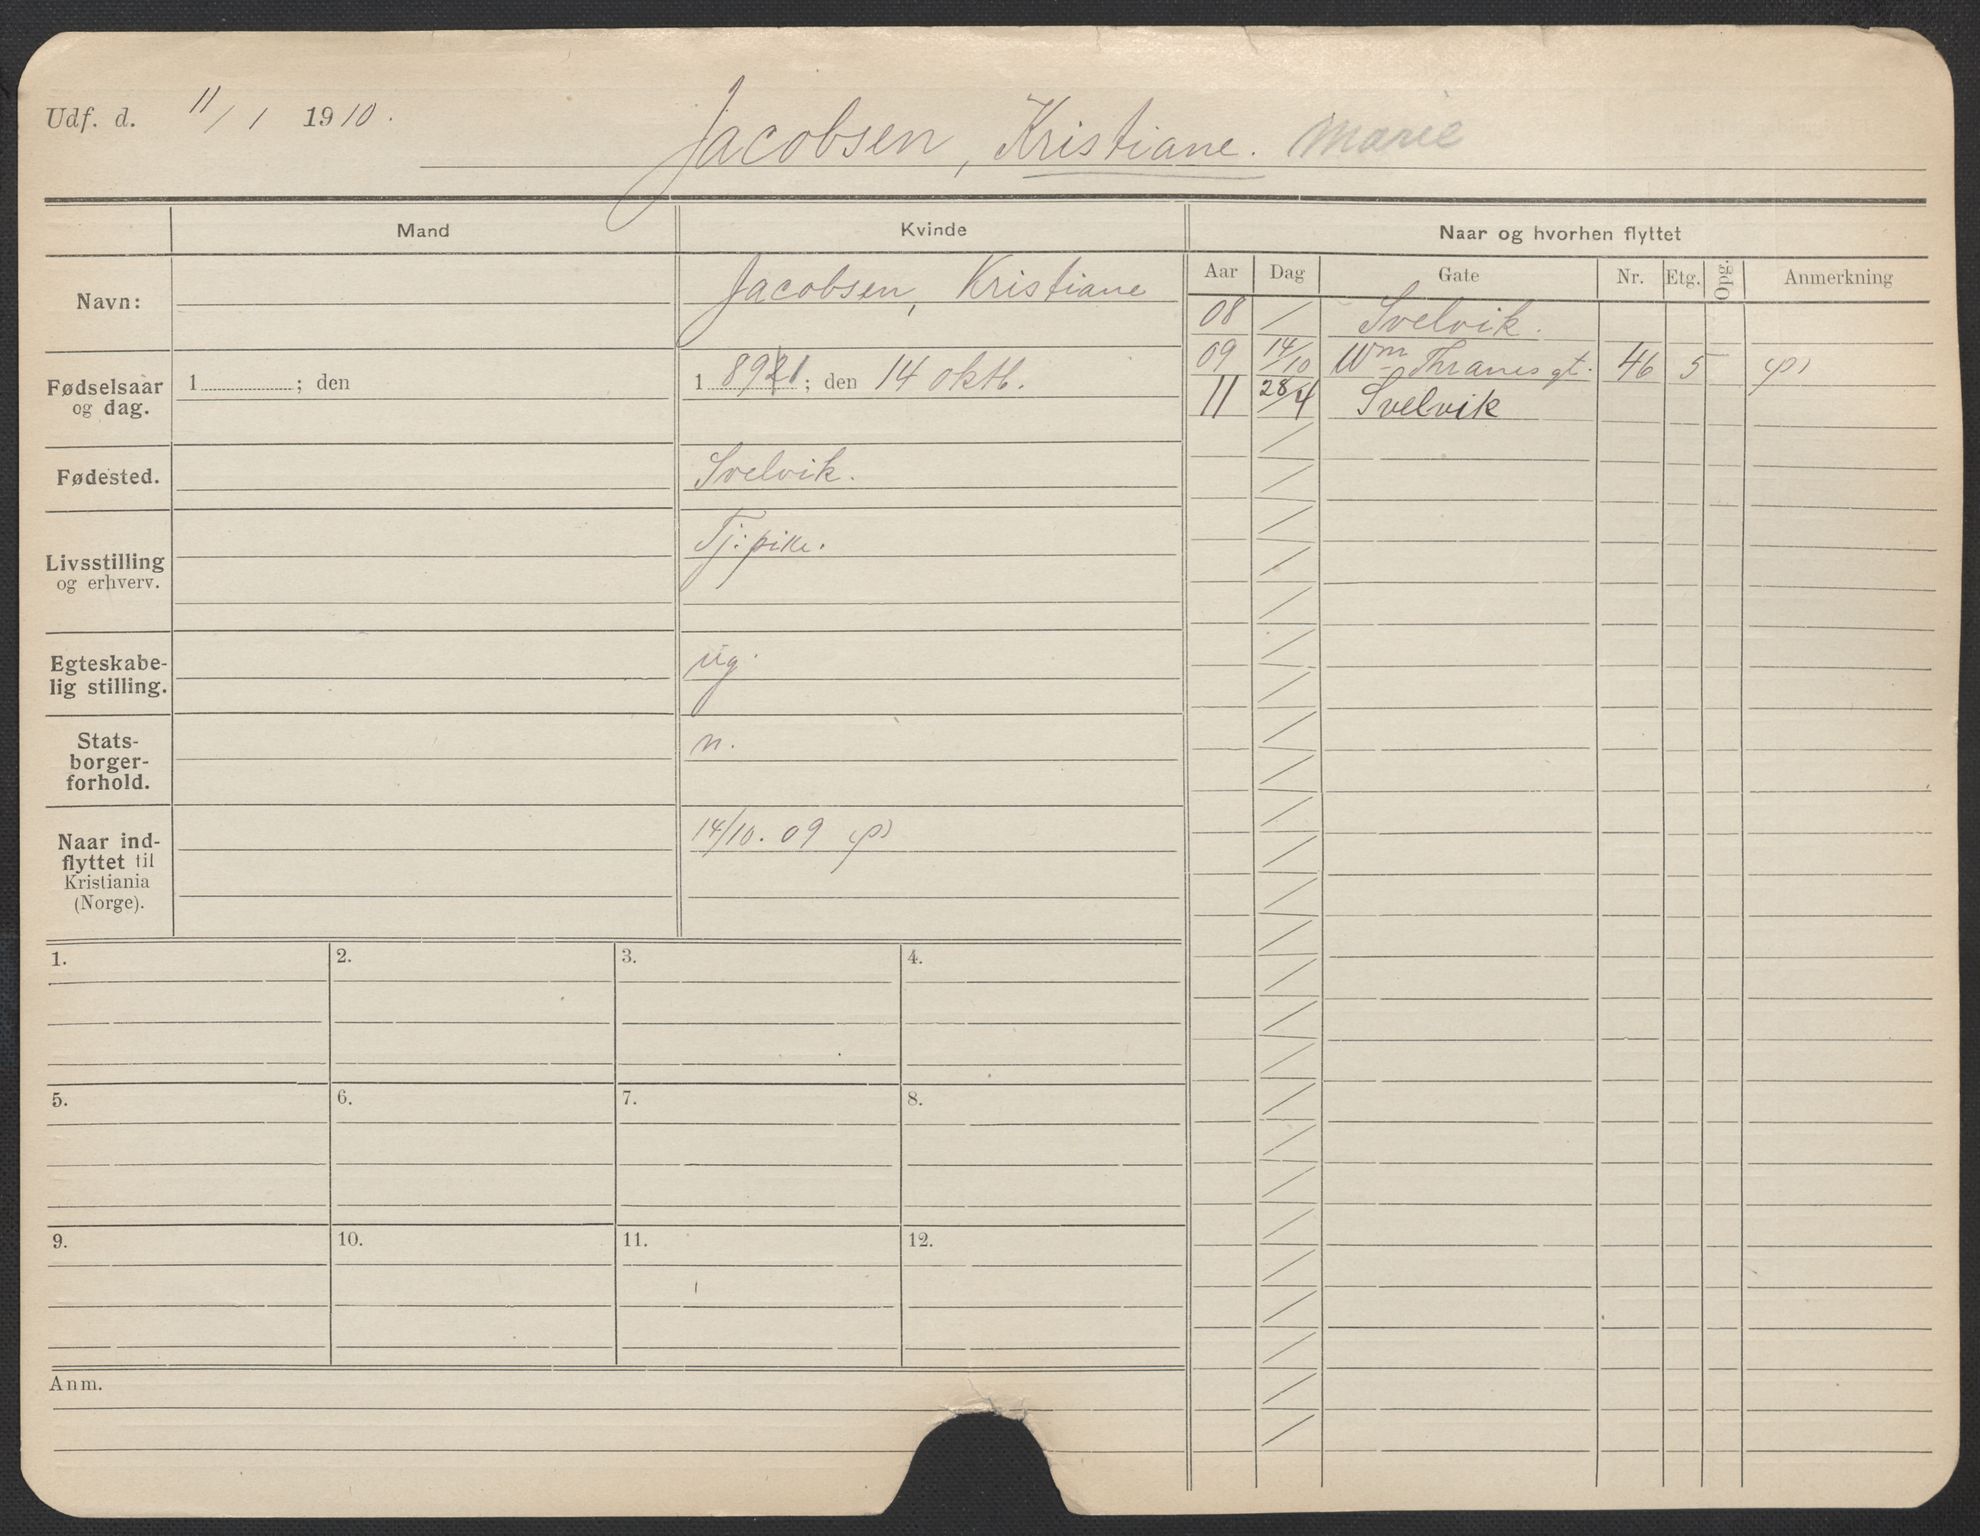 Udf. d. 11/1 1910.
Jacobsen, Kristiane. Marie
Mand
Kvinde
Naar og hvorhen flyttet
Aar Dag Gate Nr. Etg. Opg. Anmerkning
08 / Svelvik.
09 14/10 Wm Thranes gt. 46 5 (p)
11 28/4 Svelvik
Navn: Jacobsen, Kristiane
Fødselsaar og dag. 1 ; den 1 891 ; den 14 oktb.
Fødested. Svelvik.
Livsstilling og erhverv. Tj: pike.
Egteskabe-
lig stilling. ug.
Stats-
borger-
forhold. n.
Naar ind-
flyttet til
Kristiania
(Norge). 14/10. 09 (p)
1. 2. 3. 4.
5. 6. 7. 8.
9. 10. 11. 12.
Anm.